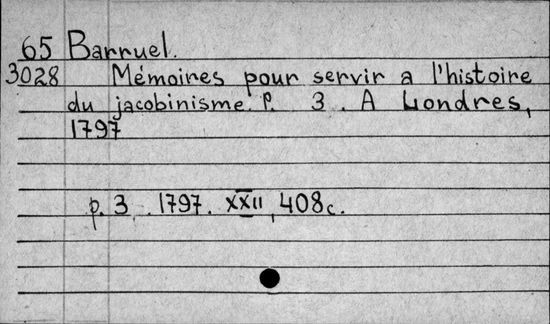 65 Barruel.
3028 Mémoires pour servir a l'histoire
du jacobinisme. P. 3. A Londres,
1797
p. 3. 1797. XXII, 408c.